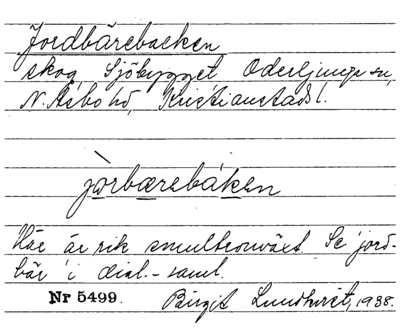 Jordbärebacken
skog, Sjöbygget Oderljunga sn,
N. Åsbo hd, Kristianstads l.
jòrbærebáken
Här är rik smultronväxt. Se 'jord-
bär' i dial.-saml.
Nr 5499. Birgit Lundkvist, 1938.